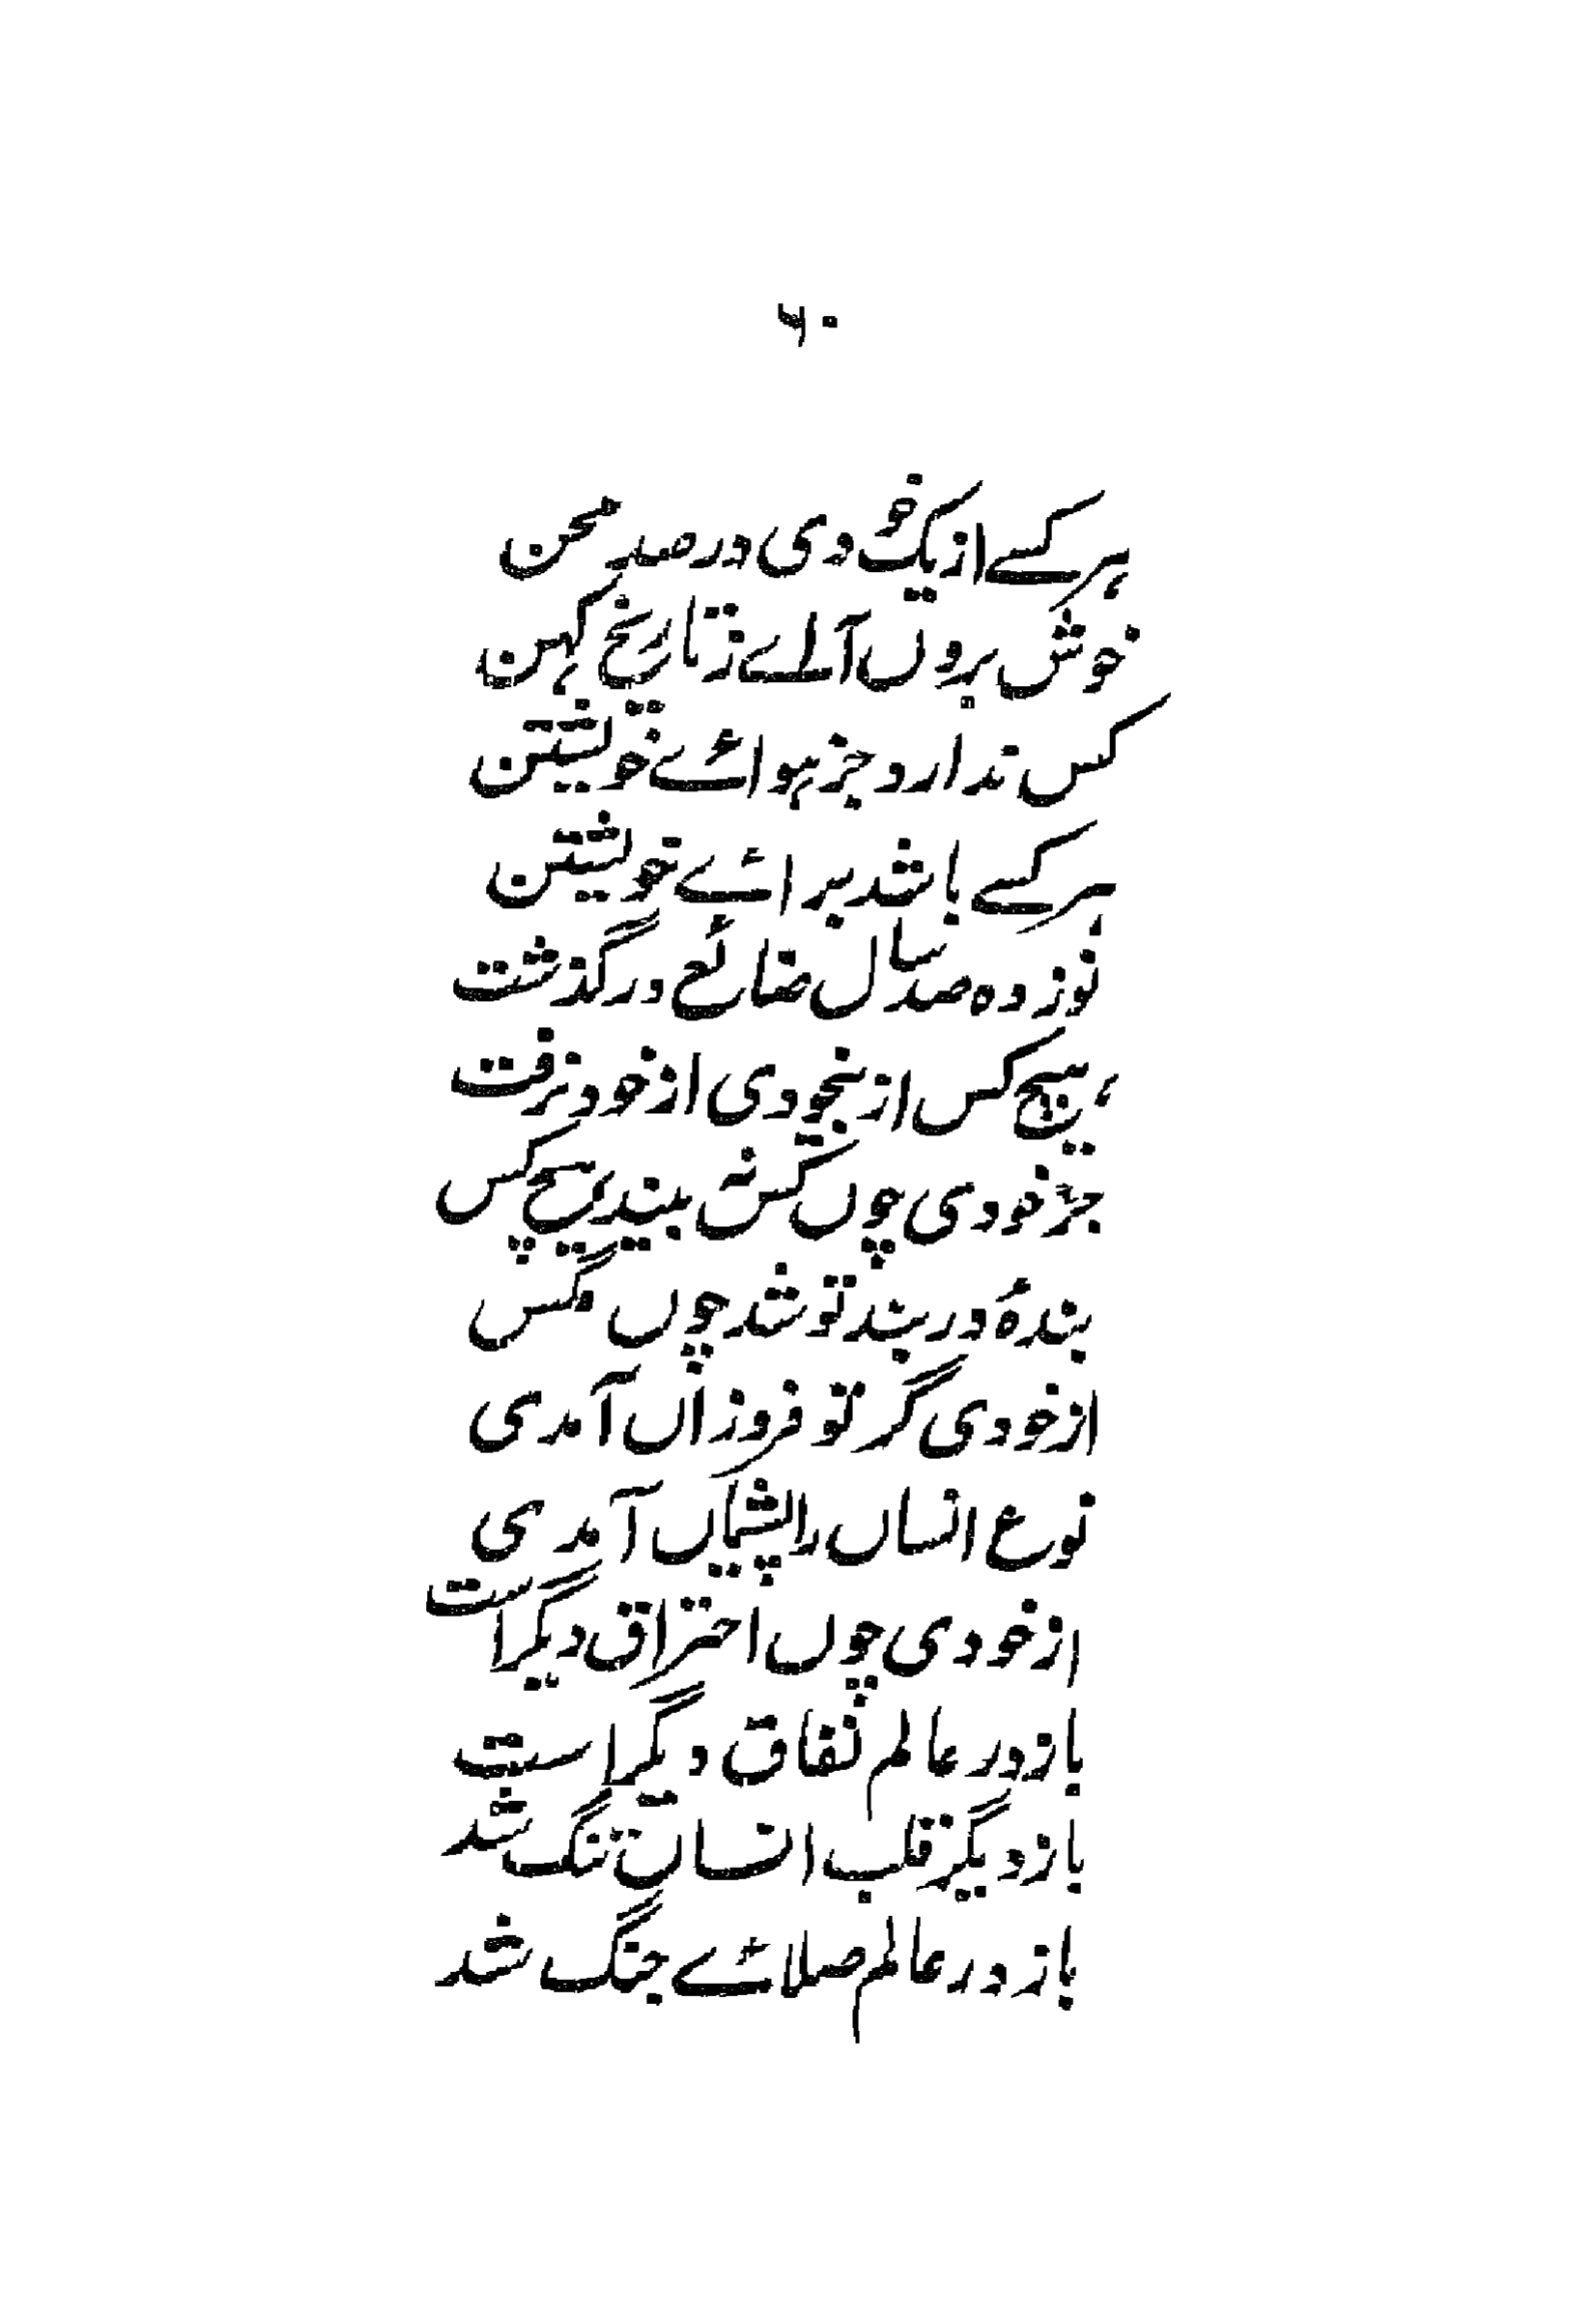 ۶۰
ہر کسے از یک خودی در صد محن
خوش بروں آ اے ز تاریخ کہن
کس ندارد جز ہوائے خویشتن
ہر کسے باشد برائے خویشتن
نوزدہ صد سال ضائع در گذشت
ہیچ کس از بیخودی از خود نرفت
جز خودی چوں کس نہ بیند ہیچ کس
بندۂ در بند تو شد چوں مگس
از خودی گر تو فروزاں آمدی
نوع انساں را پشیماں آمدی
از خودی چوں احتراق دیگر است
باز در عالم نفاق دیگر است
باز دیگر قلب انساں تنگ شد
باز در عالم صلائے جنگ شد